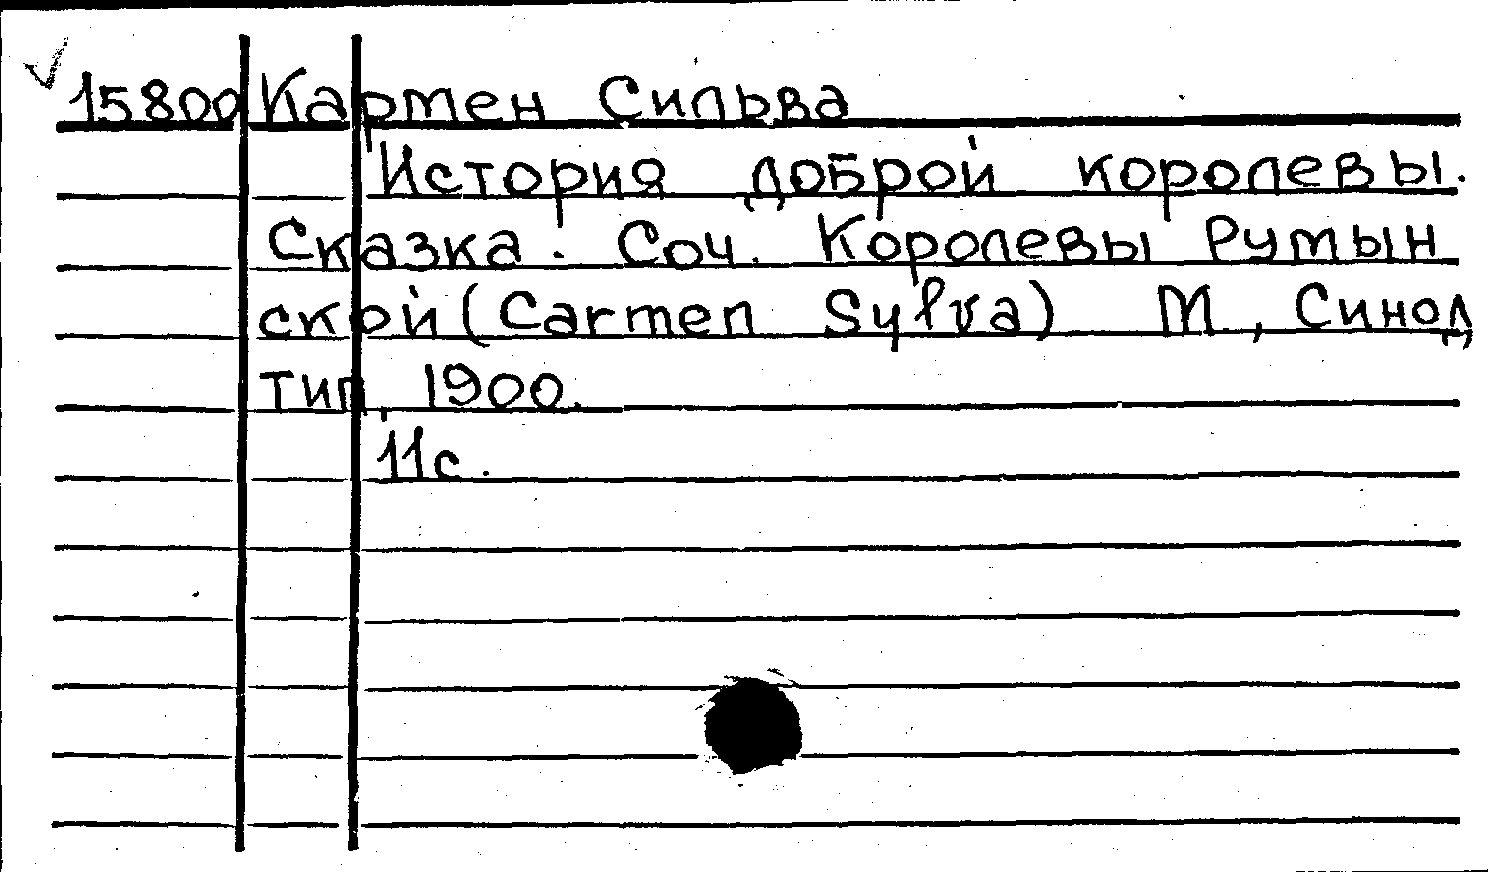 15800 Кармен Сильва
История доброй королевы.
Сказка. Соч. Королевы Румын
ской (Carmen Sylva) М, Синод
тип, 1900.
11с.